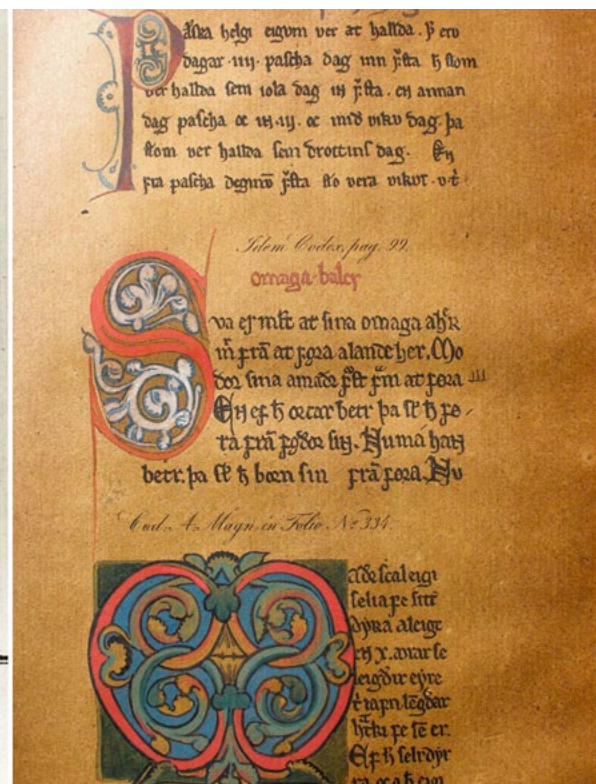 Páska helgi eigum ver at hallda. þ ero
dagar .iiii. pascha dag inn fẏsta h skom
ver hallda sem iola dag iɴ fẏsta. en annan
dag pascha oc iɴ.iij. oc mið viku dag. þa
skom ver hallda sem drottins dag. Eɴ
fra pascha deginō fẏsta sko vera vikur .v t
Idem Codex, pag. 99.
omaga-balcr
Sva er mlt at sina omaga a hR
m frā at fǫra alande her. Mo
dor sina a maðr fst fm at fǫra
Eɴ ef h orcar betr þa sk h fø-
ra frā fǫðor siɴ. Nu má haɴ
betr. þa sk h born sin frā fora. Nu
Cod. A. Magn. in Folio No 334.
aðe scal eigi
selia fe sitt
dẏra aleige
eɴ x. aurar se
leigðir eyre
t iafn lēgðar
fe sē er.
Ef h selr dẏr
ra oc a h eigi